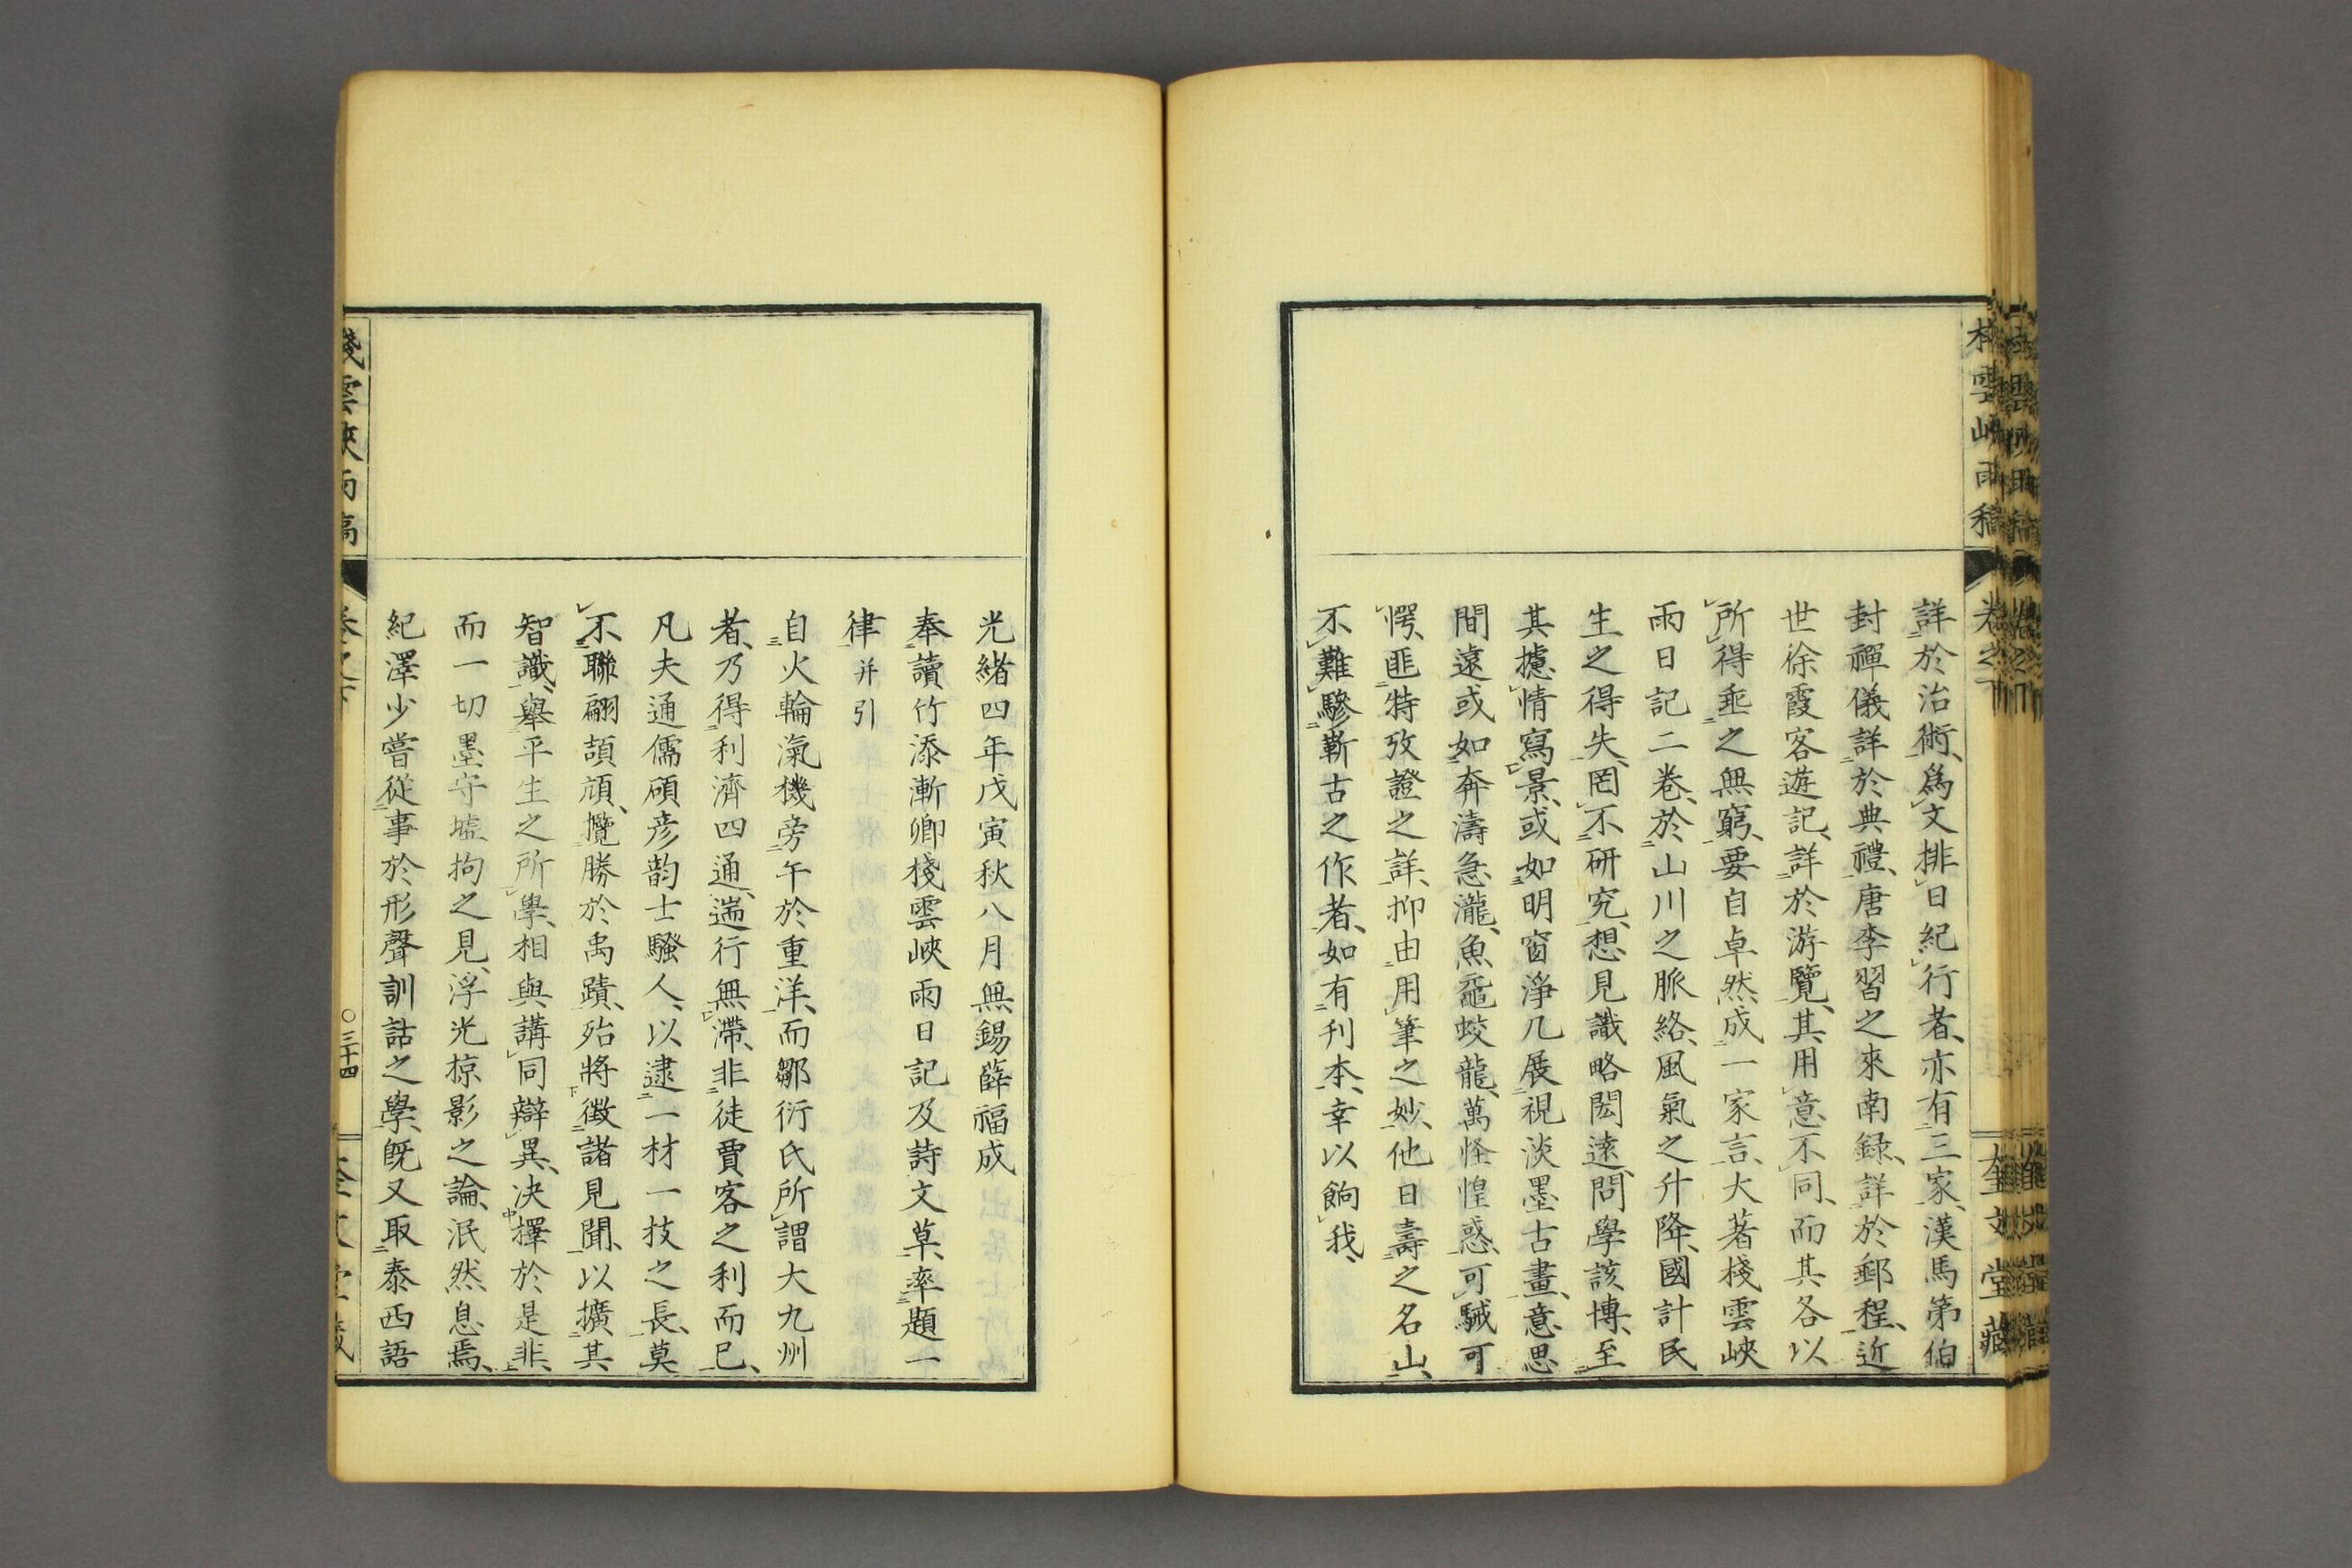 詳於治術、爲文排日紀行者、亦有三家、漢馬第伯
封禪儀詳於典禮、唐李習之來南録、詳於郵程、近
世徐霞客遊記、詳於游覽、其用意不同、而其各以
所得垂之無窮、要自卓然成一家言、大著棧雲峽
雨日記二卷、於山川之脈絡、風氣之升降、國計民
生之得失、罔不研究、想見識略閎遠、問學該博、至
其攄情寫景、或如明窗淨几展視淡墨古畫、意思
間遠或如奔濤急瀧、魚黿蛟龍、萬怪惶惑、可駴可
愕、匪特攷證之詳、抑由用筆之妙、他日壽之名山、
不難驂蘄古之作者、如有刊本、幸以餉我、
光緒四年戊寅秋八月無錫薛福成
奉讀竹添漸卿棧雲峽雨日記及詩文草、率題一
律并引
自火輪氣機旁午於重洋、而鄒衍氏所謂大九州
者、乃得利濟四通、遄行無滯、非徒賈客之利而已、
凡夫通儒碩彦韵士騷人、以逮一材一技之長、莫
不聯翩頡頏、攬勝於禹蹟、殆將徵諸見聞、以擴其
智識、舉平生之所學、相與講同辯異、決擇於是非、
而一切墨守墟拘之見、浮光掠影之論、泯然息焉、
紀澤少嘗從事於形聲訓詁之學、既又取泰西語
棧雲峽雨稿
卷之下
〇三十四
奎文堂藏